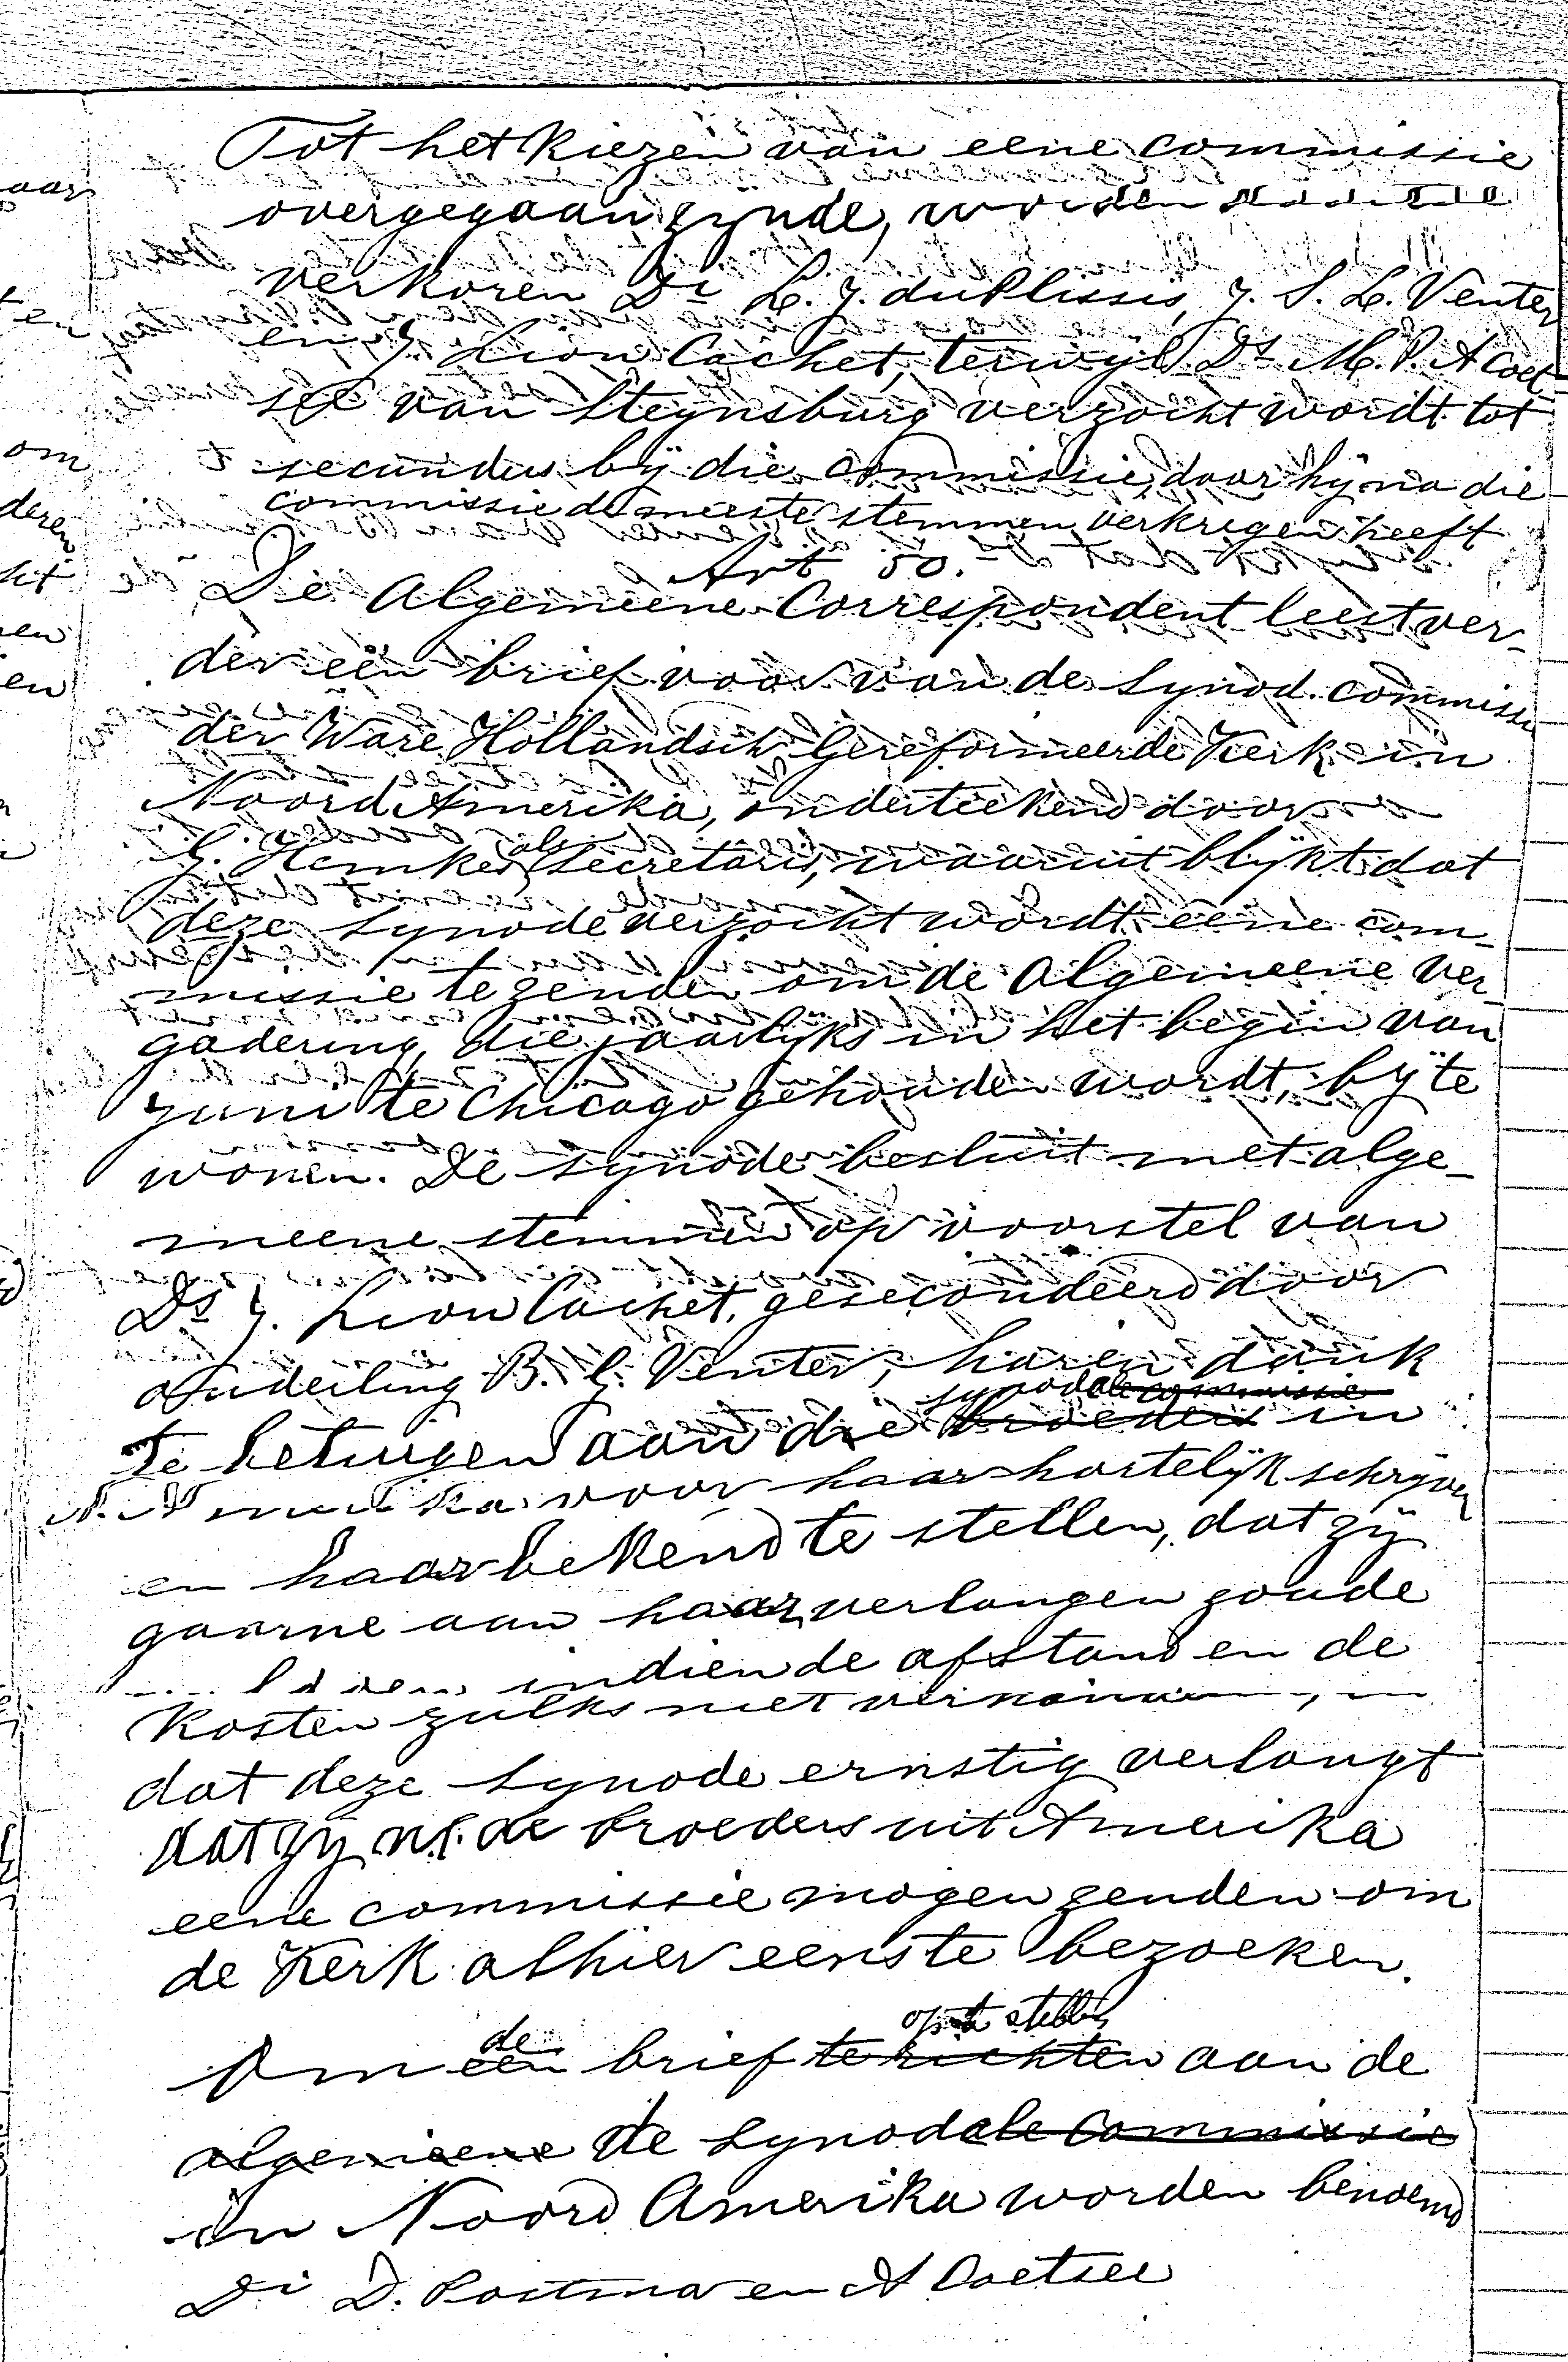 Tot het kiezen van eene commissie
overgegaan zynde, worden
verkoren Di L. J. du Plessis, J. S. L. Venter
en J. Lion Cachet, terwyl Ds M. P. A Coet-
see van Steynsburg verzocht wordt tot
secundus bÿ die commissie, daar hÿ na die
commissie de meeste stemmen verkregen heeft
Art 50.
De Algemeene Correspondent leest ver-
der een brief voor van de Synod. commissie
der Ware Hollandsch Gereformeerde Kerk in
Noord Amerika, onderteekend door
G. Hemkes als Secretaris, waaruit blÿkt dat
deze Synode verzocht wordt eene com-
missie te zenden om de Algemeene Ver-
gadering, die jaarlÿks in het begin van
Juni te Chicago gehouden wordt, bÿ te
wonen. De Synode besluit met alge-
meene stemmen op voorstel van
Ds J. Lion Cachet, gesecondeerd door
Ouderling B. J. Venter, haren dank
synodale commissie
te betuigen aan die broeders in
N. Amerika voor haar hartelÿk schrÿven
en haar bekend te stellen, dat zÿ
gaarne aan haar verlangen zoude
indien de afstand en de
Kosten zulks niet
dat deze Synode ernstig verlangt
dat zÿ nl. de broeders uit Amerika
eene commissie mogen zenden om
de Kerk alhier eens te bezoeken.
de op te stellen
Om een brief te richten aan de
algemeene de Synodale Commissie
in Noord Amerika worden benoemd
Di D. Postma en A Coetsee
aar
en
om
deren
hit
en
en